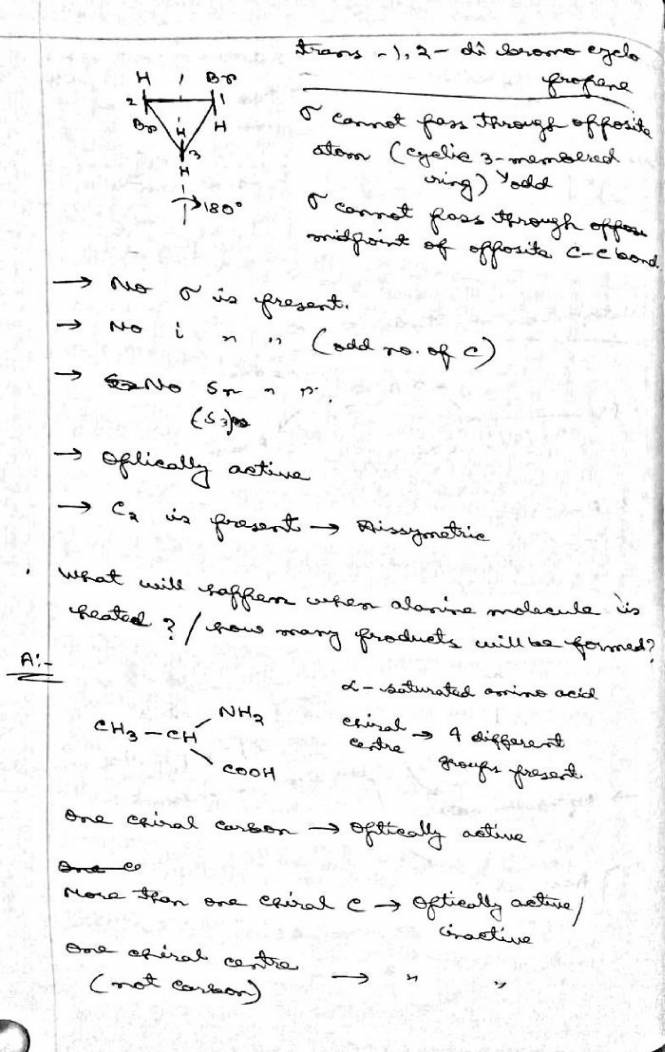 trans -1,2- di bromo cyclo
propane
H Br
2 1
Br H H
3
H
180°
σ cannot pass through opposite
atom (cyclic 3-membered
ring) odd
σ cannot pass through oppo
midpoint of opposite C-C bond.
→ No σ is present.
→ No i " " (odd no. of C)
→ No Sn " "
(S3)
→ Optically active
→ C2 is present → Dissymetric
. What will happen when alanine molecule is
heated? / how many products will be formed?
A:-
α - saturated amino acid
CH3 - CH
NH2
COOH
chiral centre → 4 different
groups present.
One chiral carbon → Optically active
One c
More than one chiral C → Optically active/
inactive
One chiral centre
(not carbon) → " "